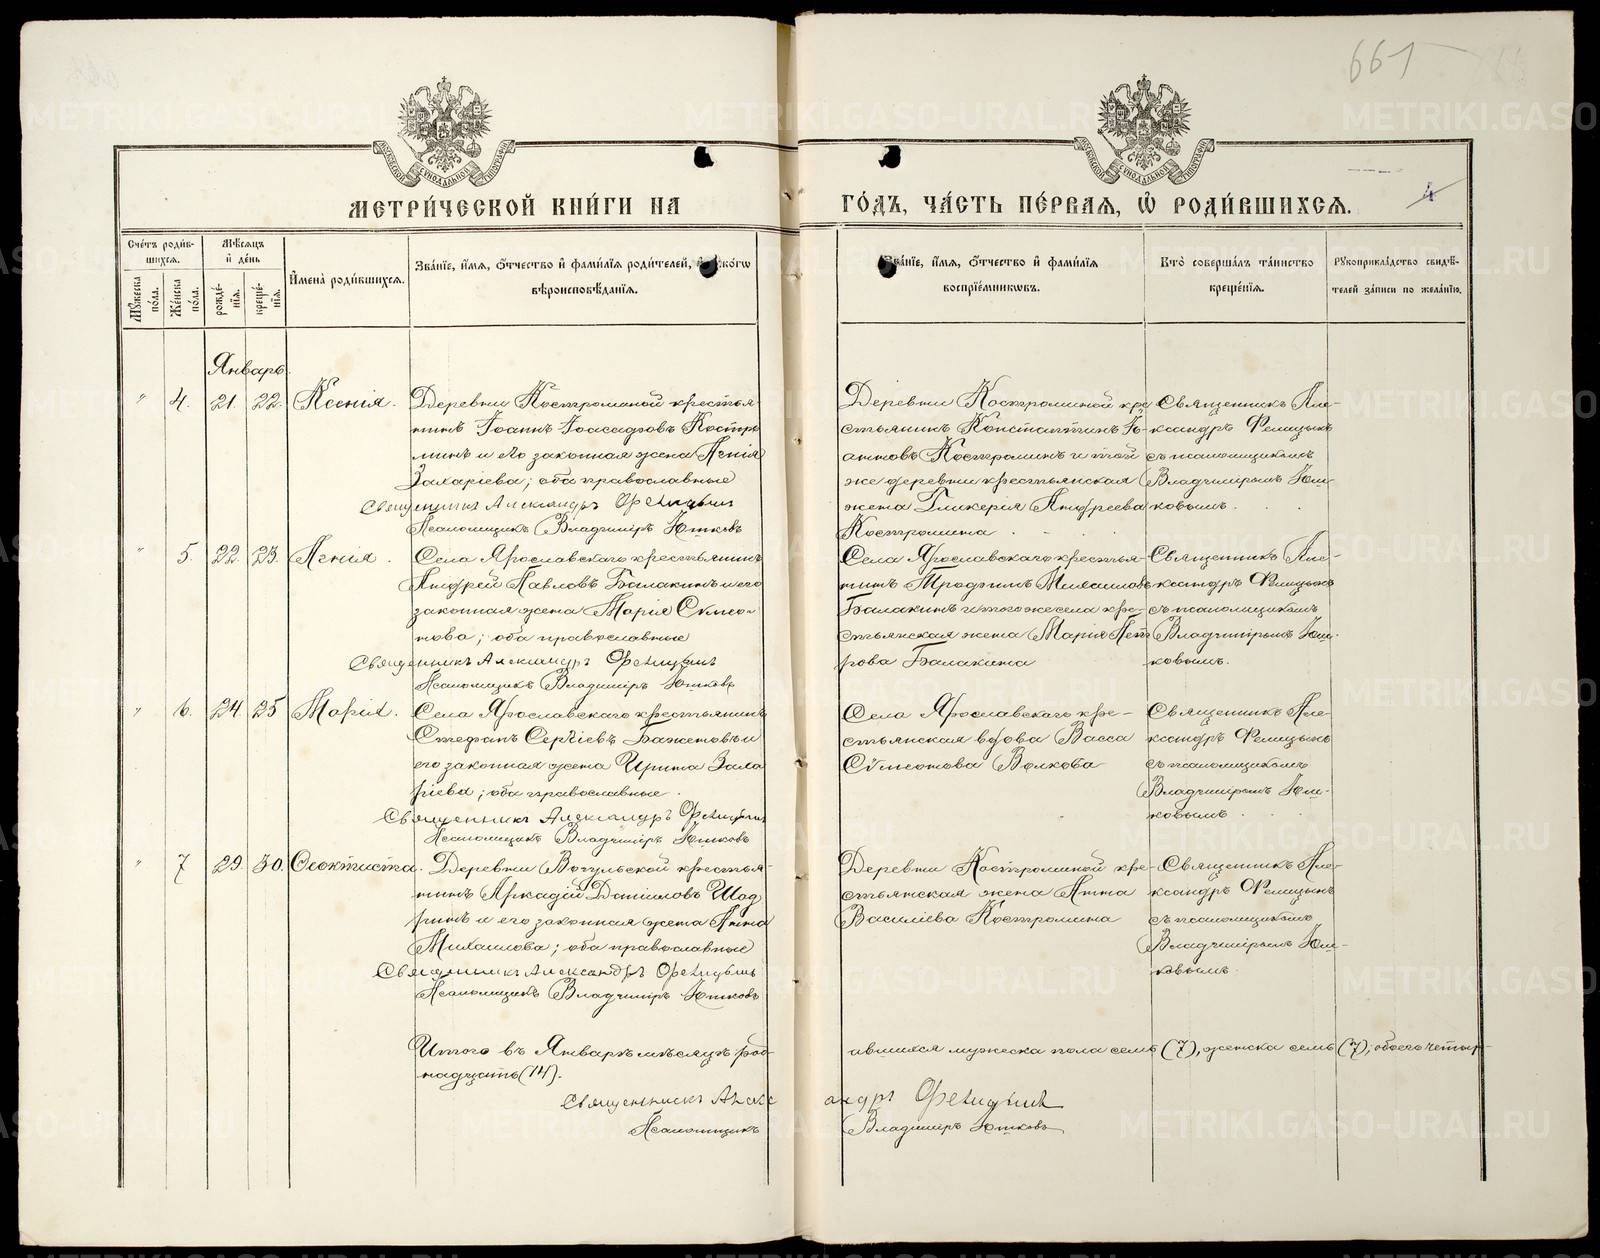 661
МЕТРИ́ЧЕСКОЙ КНИ́ГИ НА
ГО́ДЪ, ЧА́СТЬ ПЕ́РВАЯ, Ѿ РОДИ́ВШИХСЯ.
4
Сче́тъ роди́в-
шихся.
Мѣ́сяцъ
и҆ де́нь
Му́жеска по́ла.
Же́нска по́ла.
рожде́-
нїѧ.
креще́-
нїѧ.
И҆мена̀ роди́вшихся.
Зва́нїе, и҆́мя, ѻ҆́тчество и҆ фами́лїя роди́телей, и҆ како́гѡ
вѣроисповѣ́данїѧ.
Зва́нїе, и҆́мя, ѻ҆́тчество и҆ фами́лїя
воспрїе́мникѡвъ.
Кто̀ соверша́лъ та́инство
креще́нїѧ.
Рукоприкла́дство свидѣ́-
телей за́писи по жела́нїю.
Январь.
" 4. 21. 22. Ксенія.
Деревни Костроминой крестья-
нинъ Іоаннъ Іоасафовъ Костро
минъ и его законная жена Агнія
Захаріева; оба православные
Священникъ Александръ Фелицынъ
Псаломщикъ Владиміръ Юшковъ
Деревни Костроминой кре
стьянинъ Константинъ Іо-
анновъ Костроминъ и той
же деревни крестьянская
жена Гликерія Андреева
Костромина
Священникъ Але-
ксандръ Фелицынъ
съ псаломщикомъ
Владиміромъ Юш-
ковымъ.
" 5. 22. 23. Агнія.
Села Ярославскаго крестьянинъ
Андрей Павловъ Балакинъ и его
законная жена Марія Симео-
нова; оба православные
Священникъ Александръ Фелицынъ
Псаломщикъ Владиміръ Юшковъ
Села Ярославскаго крестья-
нинъ Трофимъ Михаиловъ
Балакинъ и того же села кре-
стьянская жена Марія Пет
рова Балакина
Священникъ Але-
ксандръ Фелицынъ
съ псаломщикомъ
Владиміромъ Юш-
ковымъ.
" 6. 24. 25 Марія.
Села Ярославскаго крестьянинъ
Стефанъ Сергіевъ Баженовъ и
его законная жена Ирина Заха
ріева; оба православные.
Священникъ Александръ Фелицынъ
Псаломщикъ Владиміръ Юшковъ
Села Ярославскаго кре-
стьянская вдова Васса
Симеонова Волкова
Священникъ Але-
ксандръ Фелицынъ
съ псаломщикомъ
Владиміромъ Юш-
ковымъ.
" 7 29. 30. Ѳеоктиста.
Деревни Вогульской крестья-
нинъ Аркадій Даніиловъ Шад
ринъ и его законная жена Анна
Михаилова; оба православные
Священникъ Александръ Фелицынъ
Псаломщикъ Владиміръ Юшковъ
Деревни Костроминой кре-
стьянская жена Анна
Василіева Костромина
Священникъ Але-
ксандръ Фелицынъ
съ псаломщикомъ
Владиміромъ Юш-
ковымъ.
Итого въ Январѣ мѣсяцѣ род-
ившихся мужеска пола семь (7), женска семь (7), обоего четыр-
надцать (14).
Священникъ Александръ Фелицынъ
Псаломщикъ Владиміръ Юшковъ
METRIKI.GASO-URAL.RU